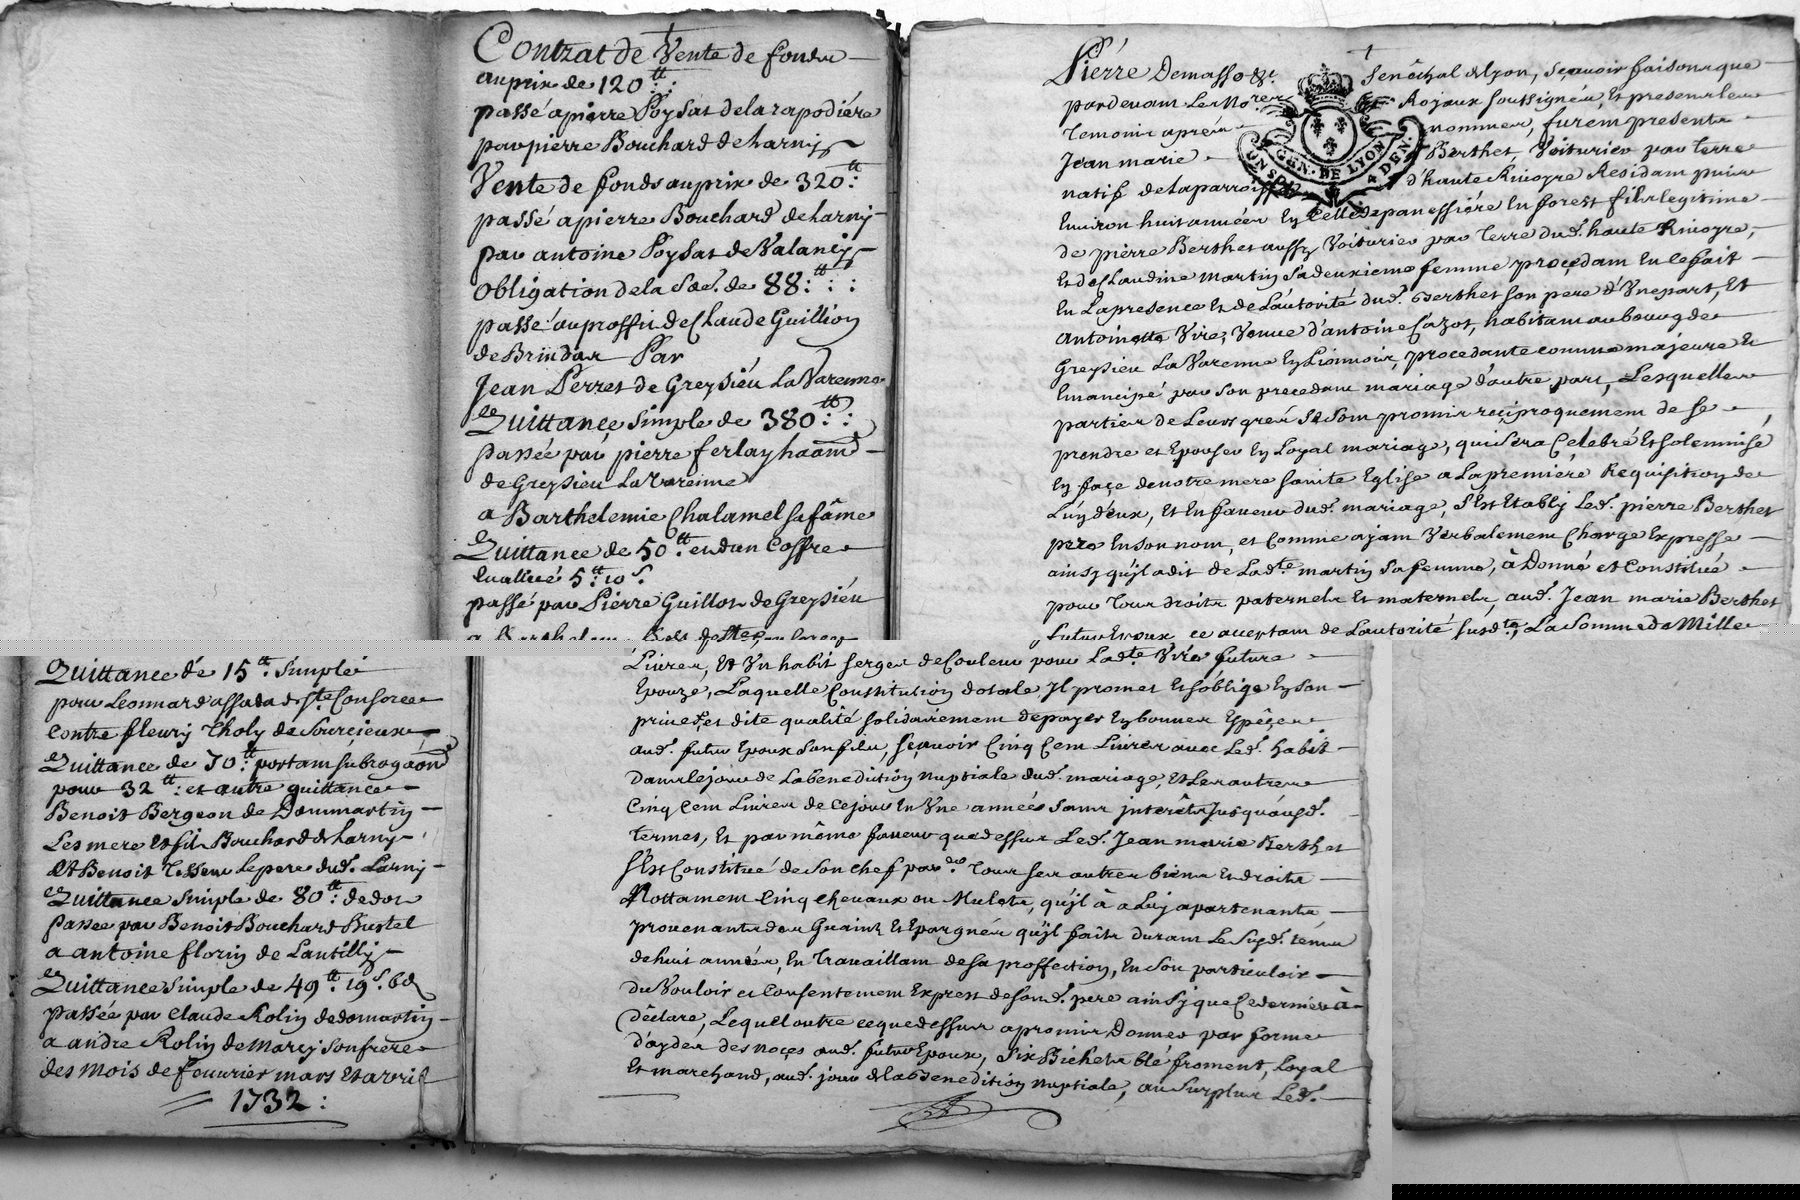 Contrat de Vente de fonds
au prix de 120tt:
passé a pierre Poysat de la rapodiére
par pierre Bouchard de Larny
Vente de fonds au prix de 320tt:
passé a pierre Bouchard de Larny
par antoine Poysat de Valancy
Obligation de la Soe. de 88tt: : :
passé au proffit de Claude Guillion
de Brindas Par
Jean Perret de Greysieu La Varenne
Quittance simple de 380tt: :
Passée par pierre ferlay
de Greysieu La Varenne
a Barthelemie Chalamel sa fâme
Quittance de 50tt: et d'un Coffre
Evallué 5tt: 10s.
passé par Pierre Guillot de Greysieu
Quittance de 15tt: Simple
pour Leonnard assada et ste Consorce
Contre fleury Tholy de Sourcieux
Quittance de 70tt: portant subrogaõn
pour 32tt: et autre quittance
Benoit Bergeon de Dommartin
Les mere et fils Bouchard de Larny
et Benoit Tisseur Le pere dud. Larny
Quittance simple de 80tt: de dot
Passée par Benoit Bouchard Bustel
a antoine florin de Lantilly
Quittance simple de 49tt: 19s. 6d
passée par Claude Rolin de domartin
a andre Rolin de Marcy son frere
des Mois de fevurier mars et avril
1732:
Pierre Demasso &c. Senêchal de Lyon, sçavoir faisons que
pardevant Les Nores. Royaux soussignés, et presens les
Temoins aprés nommés, furent presents
Jean marie Berthet, Voiturier par terre
natif de la parroisse d'haute Rivoyre Residant puis
Environ huit années En Celle de panessiére En forest fils legitime
de pierre Berthet aussy Voiturier par Terre dud. haute Rivoyre,
Et de Claudine martin sa deuxieme femme procedant En ce fait
En La presence et de L'autorité dud. Berthet son pere d'Une part, Et
Antoinette Vire, Veuve d'antoine Cazot, habitant au bourg de
Greysieu La Varenne En Lionnois, procedante comme majeure et
Emancipé par son precedant mariage d'autre part, Lesquelles
parties de Leurs grés se sont promis reciproquement de se
prendre et Epouser En Loyal mariage, qui sera Celebré et solemnisé
En façe de notre mere sainte Eglise a La premiére Requisition de
L'un d'eux, et En faveur dud. mariage, s'Est Etably Led. pierre Berthet
pere En son nom, et Comme ayant Verbalement Charge Expresse
ainsy qu'jl a dit de Ladte. martin sa femme, à Donné et Constitué
pour Tous droits paternels et maternels, aud. Jean marie Berthet
futur Epoux ce acceptant de L'autorité susdte, La Somme de Mille
Livres, Et Un habit serge de Couleur pour Ladte Vire future
Epouze, Laquelle Constitution dotale Jl promet et s'oblige En son
privé, et dite qualité solidairement de payer En bonnes Espêçes
aud. futur Epoux son fils, sçavoir Cinq Cent Livres avec Led. habit
Dans le jour de La benediction nuptiale dud. mariage, et Les autres
Cinq Cent Livres de ce jour En Une année sans jnterêts jusqu'aud.
termes, Et par même faveur que dessus Led. Jean marie Berthet
s'Est Constitué de son chef Tous ses autres biens et droits
Nottament Cinq chevaux ou Mulets, qu'jl à a Luy apartenants,
provenants des Gains et Epargnes qu'jl faits durant Le susd. tems
de huit années, En Travaillant de sa proffection, En son particulier
du Vouloir et Consentement Exprest de sond. pere ainsy que Ce dernier à
Déclare, Lequel outre ce que dessus a promis Donner par forme
d'ayde des noçes aud. futur Epoux, Six Bichets blé froment, Loyal
Et marchand, aud. jour de La Benediction nuptiale, au surplus Led.
GEN. DE LYON
UN SOL
4 DEN.